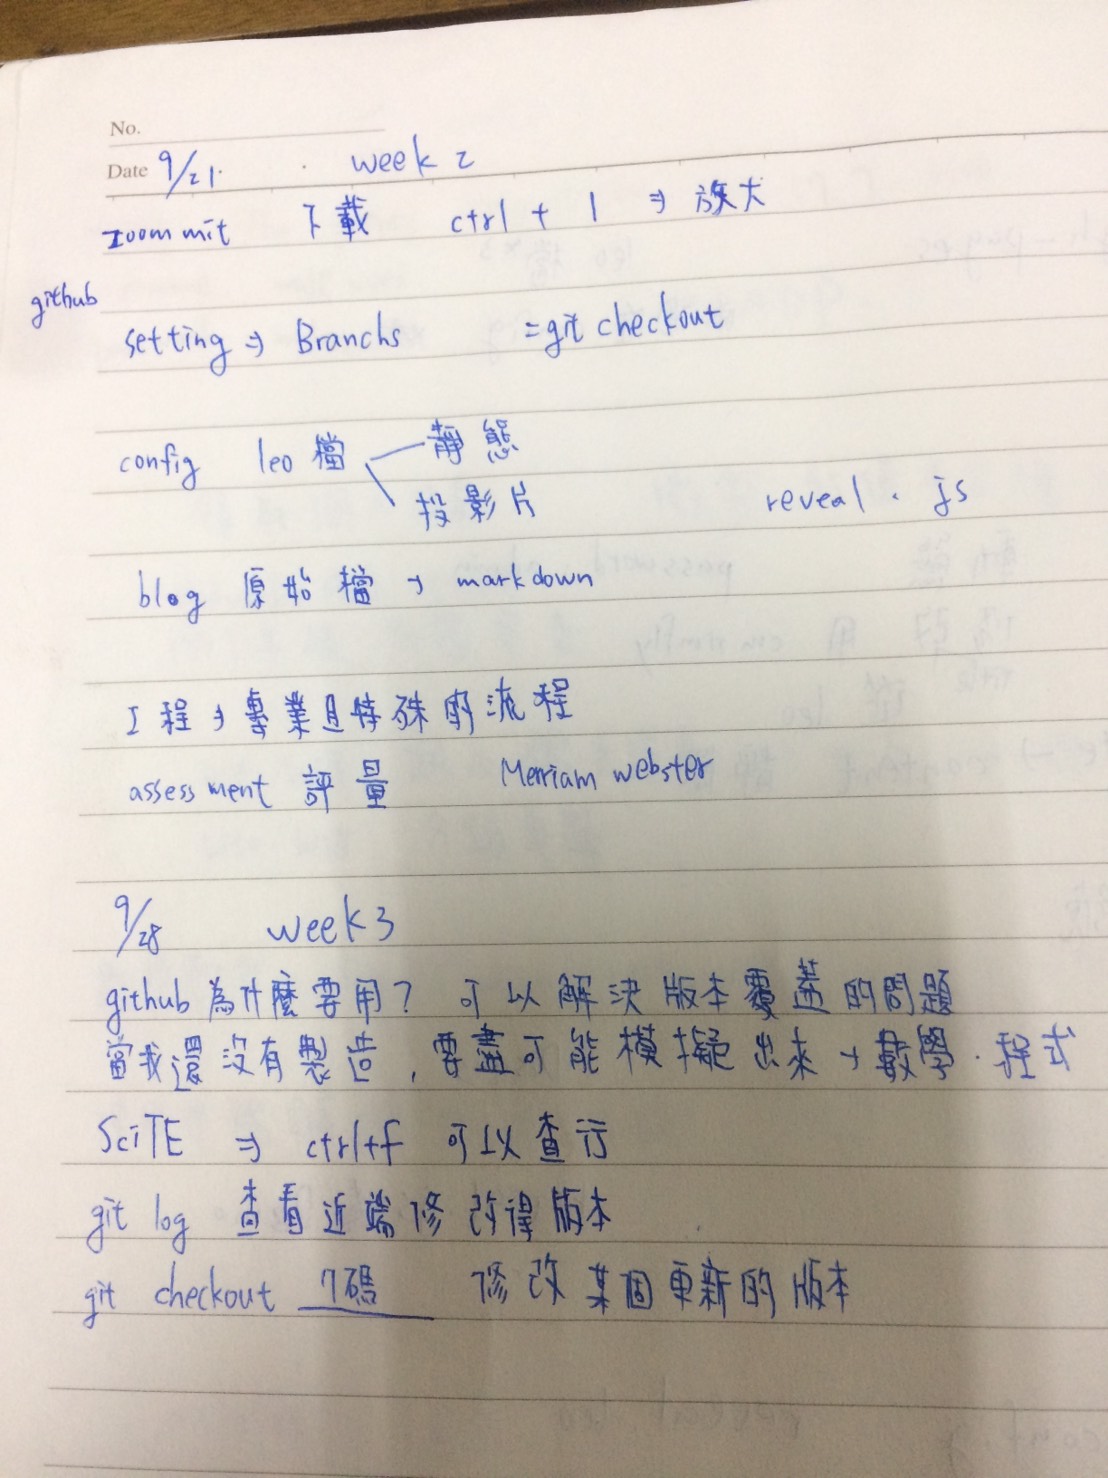 No.
Date 9/21. week 2
zoom mit 下載 ctrl + 1 ⇒ 放大
github
setting ⇒ Branchs = git checkout
config leo 檔 靜態
投影片 reveal . js
blog 原始檔 → markdown
工程 → 專業且特殊的流程
assessment 評量 Merriam webster
9/28 week 3
github 為什麼要用? 可以解決版本覆蓋的問題
當我還沒有製造,要盡可能模擬出來 → 數學.程式
SciTE ⇒ ctrl+f 可以查行
git log 查看近端修改得版本
git checkout 7碼 修改某個更新的版本